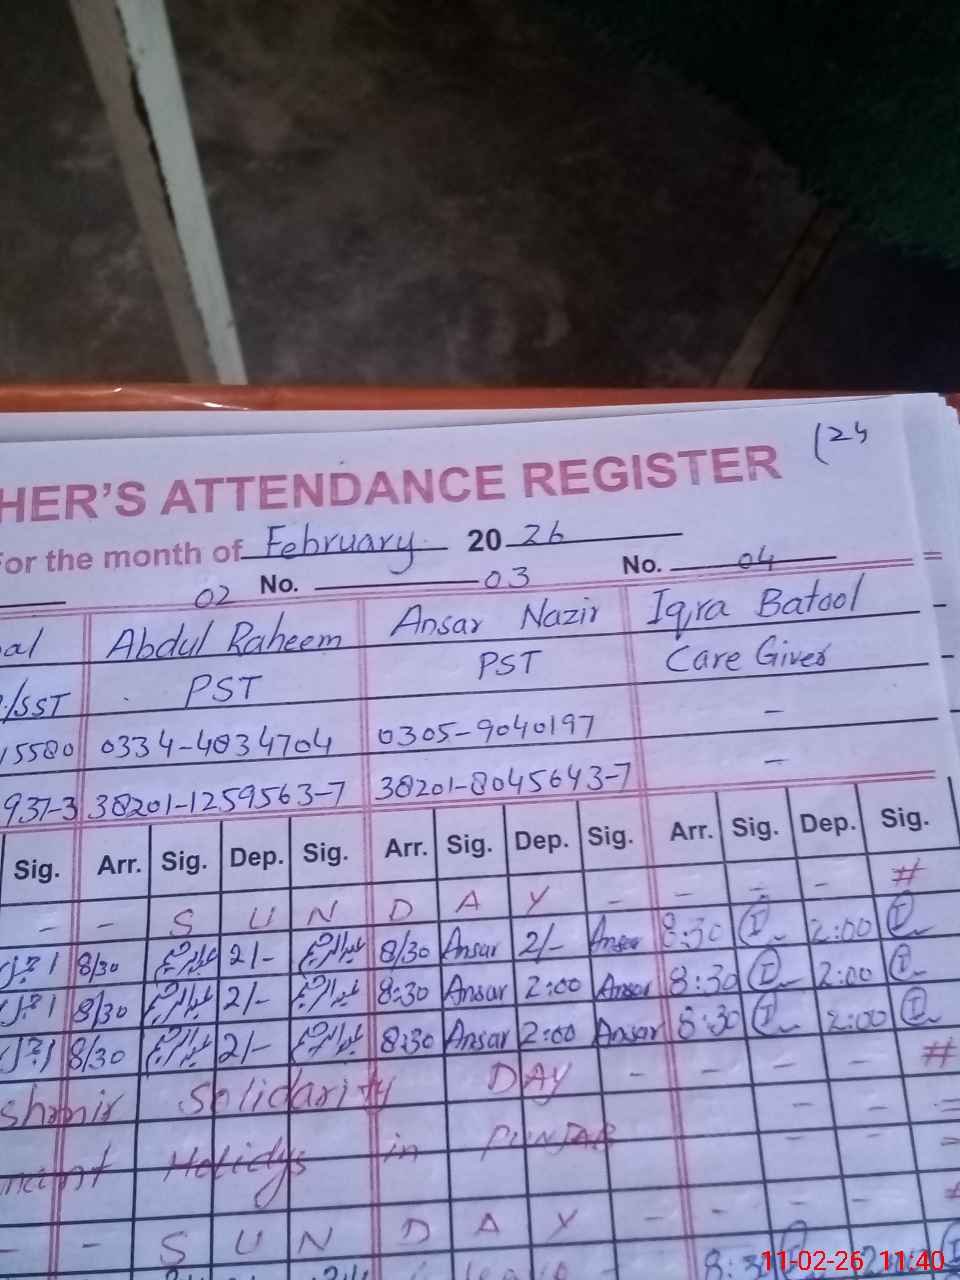 (24
HER'S ATTENDANCE REGISTER
For the month of February 20 26
02 No. 03 No. 04
al Abdul Raheem Ansar Nazir Iqra Batool
/SST PST PST Care Giver
15580 0334-4034704 0305-9040197 -
937-3 38201-1259563-7 38201-8045643-7 -
Sig. Arr. Sig. Dep. Sig. Arr. Sig. Dep. Sig. Arr. Sig. Dep. Sig.
- - S U N D A Y - - - - #
8/30 عبدالرحیم 2/- عبدالرحیم 8/30 Ansar 2/- Ansar 8:30 I 2:00 I
8/30 عبدالرحیم 2/- عبدالرحیم 8:30 Ansar 2:00 Ansar 8:30 I 2:00 I
8/30 عبدالرحیم 2/- عبدالرحیم 8:30 Ansar 2:00 Ansar 8:30 I 2:00 I
shmir Solidarity DAY - - - - #
Holidys in PUNJAB - -
- - S U N D A Y - - - -
8:3
11-02-26 11:40